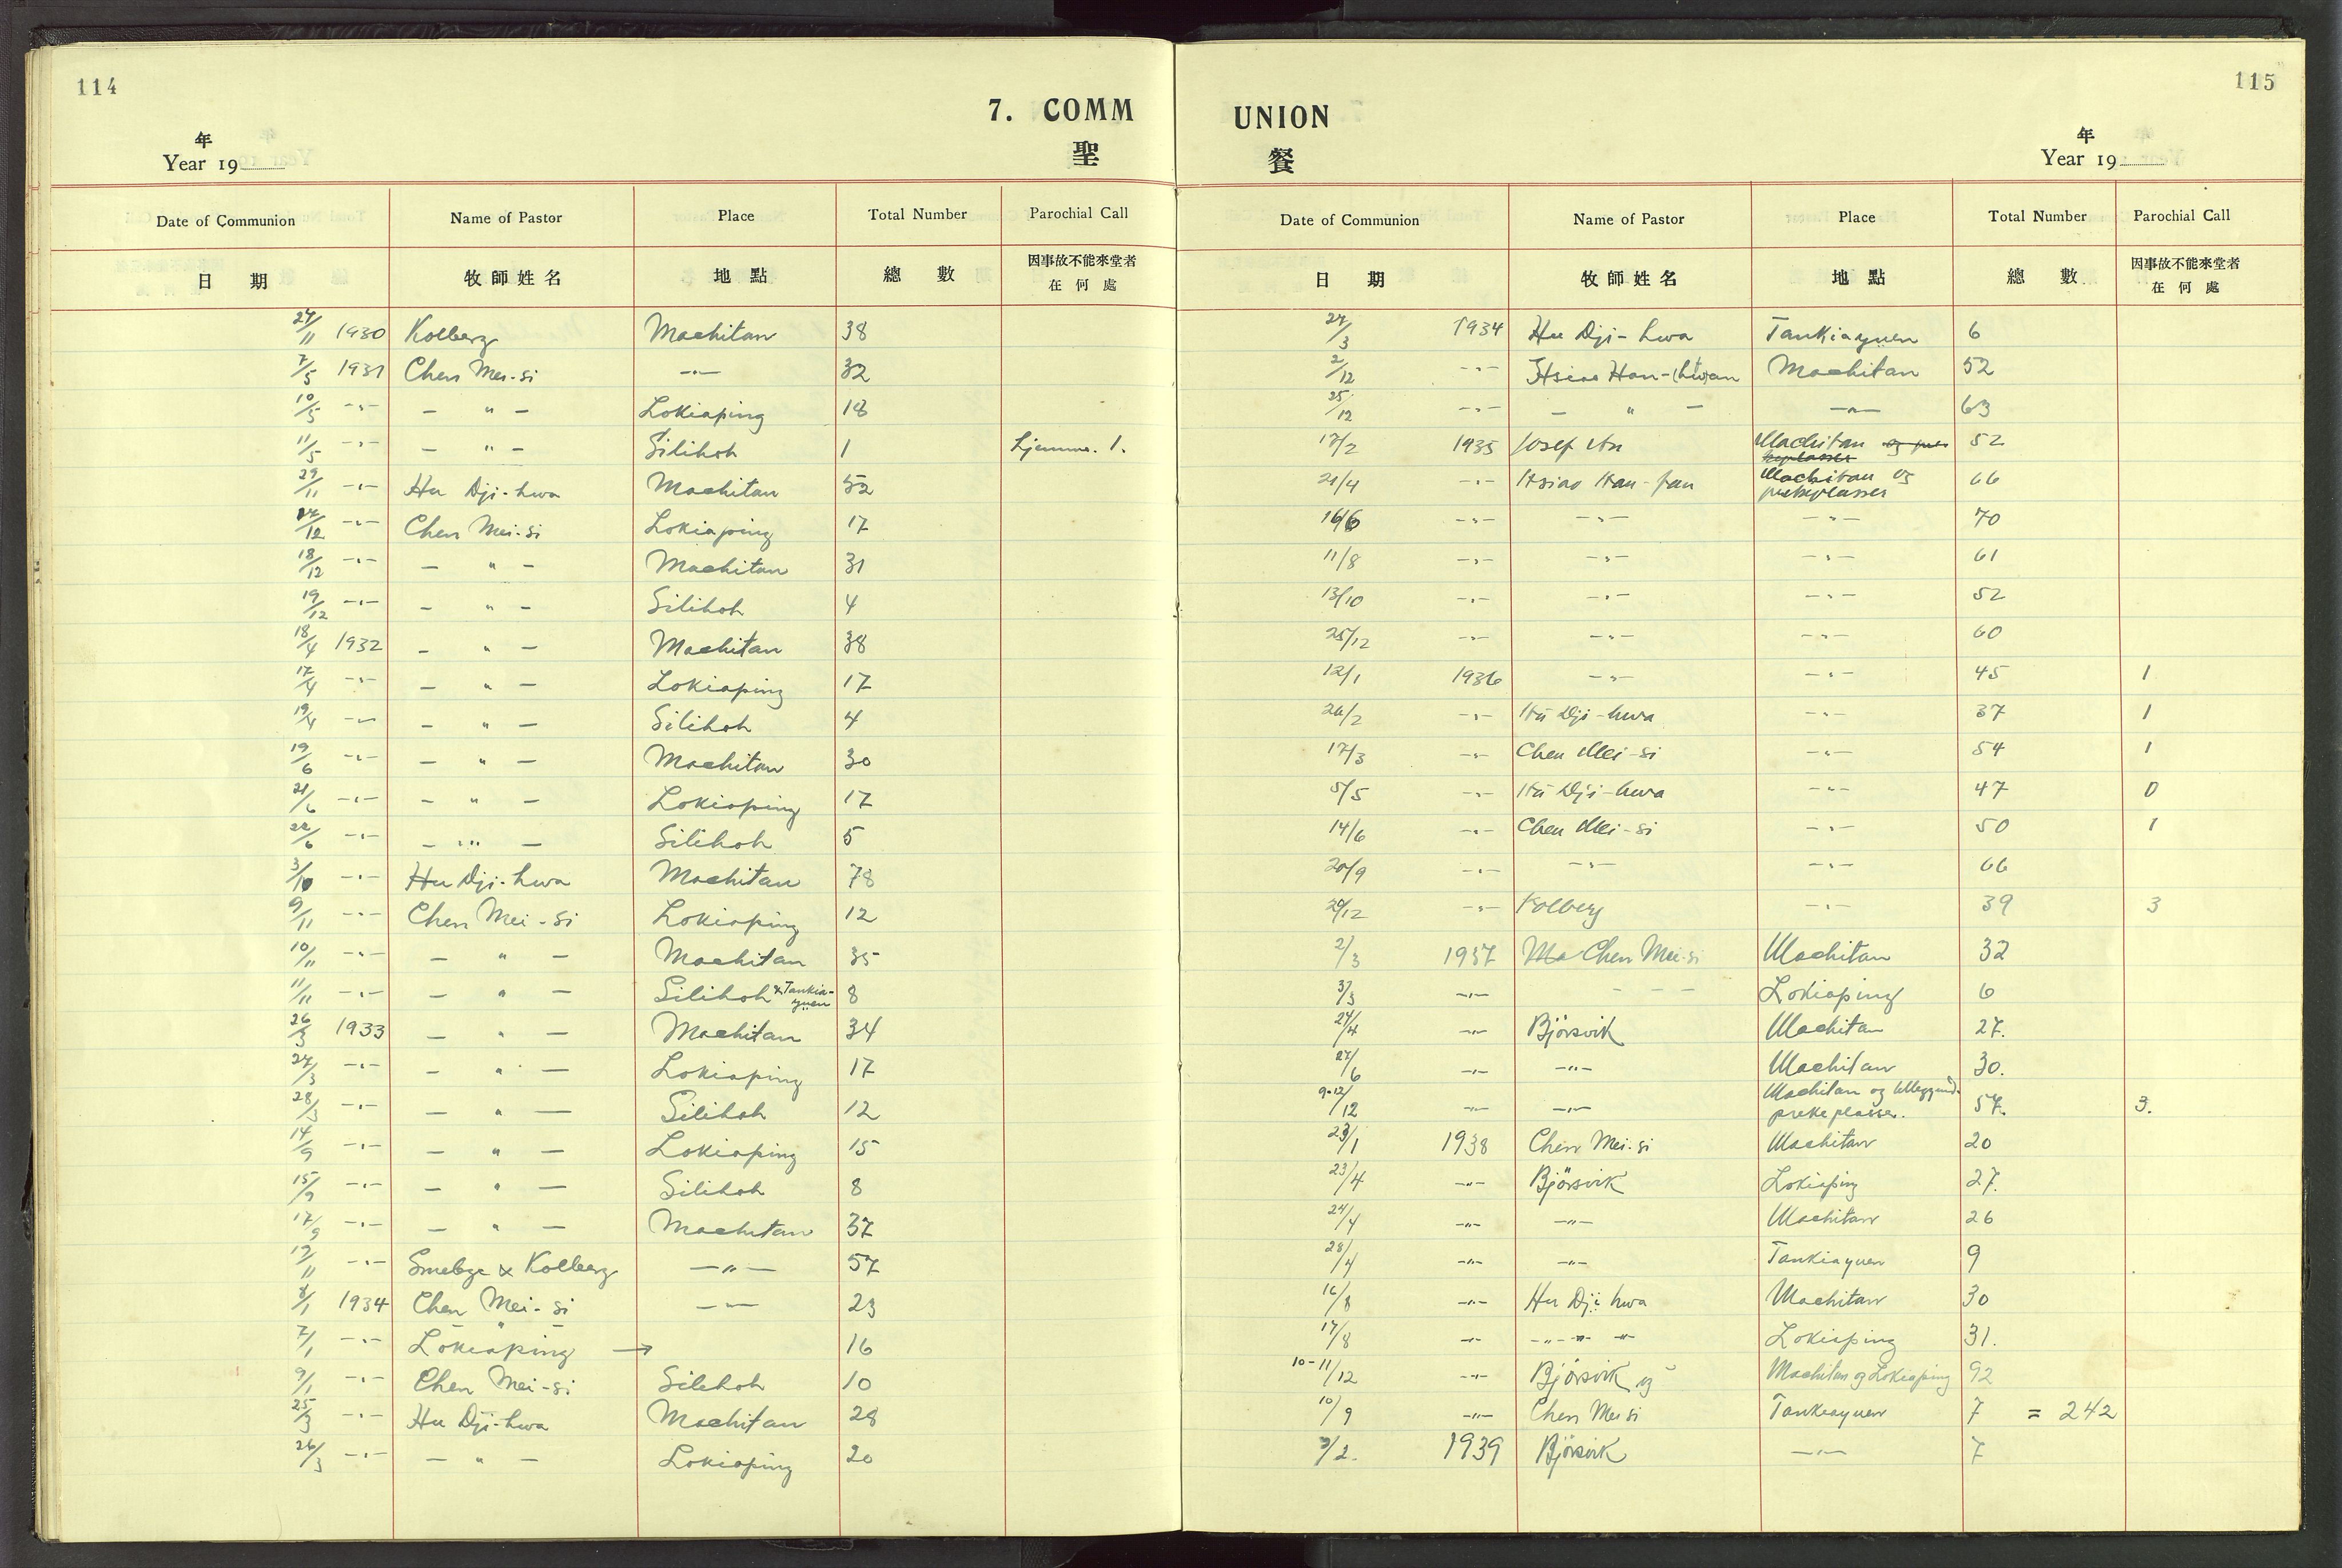 114
7. COMM
年
聖
Year 19
Date of Communion Name of Pastor Place Total Number Parochial Call
日 期 牧師姓名 地點 總 數 因事故不能來堂者
在何處
24/11 1930 Kolberg Machitan 38
7/5 1931 Chen Mei-si -"- 32
10/5 -"- - " - Lokiaping 18
11/5 -"- - " - Silihoh 1 Hjemme. 1.
29/11 -"- Hu Dji-hwa Machitan 52
/12 -"- Chen Mei-si Lokiaping 17
18/12 -"- - " - Machitan 31
19/12 -"- - " - Silihoh 4
18/4 1932 - " - Machitan 38
17/4 -"- - " - Lokiaping 17
19/4 -"- - " - Silihoh 4
19/6 -"- - " - Machitan 30
21/6 -"- - " - Lokiaping 17
22/6 -"- - " - Silihoh 5
3/10 -"- Hu Dji-hwa Machitan 78
9/11 -"- Chen Mei-si Lokiaping 12
10/11 -"- - " - Machitan 35
11/11 -"- - " - Silihoh & Tankia-
yuen 8
26/3 1933 - " - Machitan 34
27/3 -"- - " - Lokiaping 17
28/3 -"- - " - Silihoh 12
14/9 -"- - " - Lokiaping 15
15/9 -"- - " - Silihoh 8
17/9 -"- - " - Machitan 37
12/11 -"- & Kolberg -"- 57
/1 1934 Chen Mei-si -"- 23
7/1 -"- Lokiaping → 16
9/1 -"- Chen Mei-si Silihoh 10
25/3 -"- Hu Dji-hwa Machitan 28
26/3 -"- - " - Lokiaping 20
115
UNION
年
餐
Year 19
Date of Communion Name of Pastor Place Total Number Parochial Call
日 期 牧師姓名 地點 總 數 因事故不能來堂者
在何處
27/3 1934 Hu Dji-hwa Tankiayuen 6
2/12 -"- Hsiao Han- Machitan 52
25/12 -"- - " - -"- 63
17/2 1935 Josef Machitan og 52
21/4 -"- Hsiao Han-fan Machitan og
prekeplasser 66
16/6 -"- -"- -"- 70
11/8 -"- -"- -"- 61
13/10 -"- -"- -"- 52
25/12 -"- -"- -"- 60
12/1 1936 -"- -"- 45 1
26/2 -"- Hu Dji-hwa -"- 37 1
17/3 -"- Chen Mei-si -"- 54 1
5/5 -"- Hu Dji-hwa -"- 47 0
14/6 -"- Chen Mei-si -"- 50 1
20/9 -"- -"- -"- 66
/12 -"- Kolberg -"- 39 3
2/3 1937 Chen Mei-si Machitan 32
3/3 -"- - - - Lokiaping 6
24/4 -"- Björsvik Machitan 27.
27/6 -"- -"- Machitan 30.
9-12/12 -"- -"- Machitan og
prekeplasser. 57. 3.
23/1 1938 Chen Mei-si Machitan 20
23/4 -"- Björsvik Lokiaping 27.
24/4 -"- -"- Machitan 26
28/4 -"- -"- Tankiayuen 9
16/8 -"- Hu Dji hwa Machitan 30
17/8 -"- -"- -"- Lokiaping 31.
10-11/12 -"- Björsvik og Machitan og Lokiaping 92
10/9 -"- Chen Mei si Tankiayuen 7 = 242
/2. 1939 Björsvik -"- 7